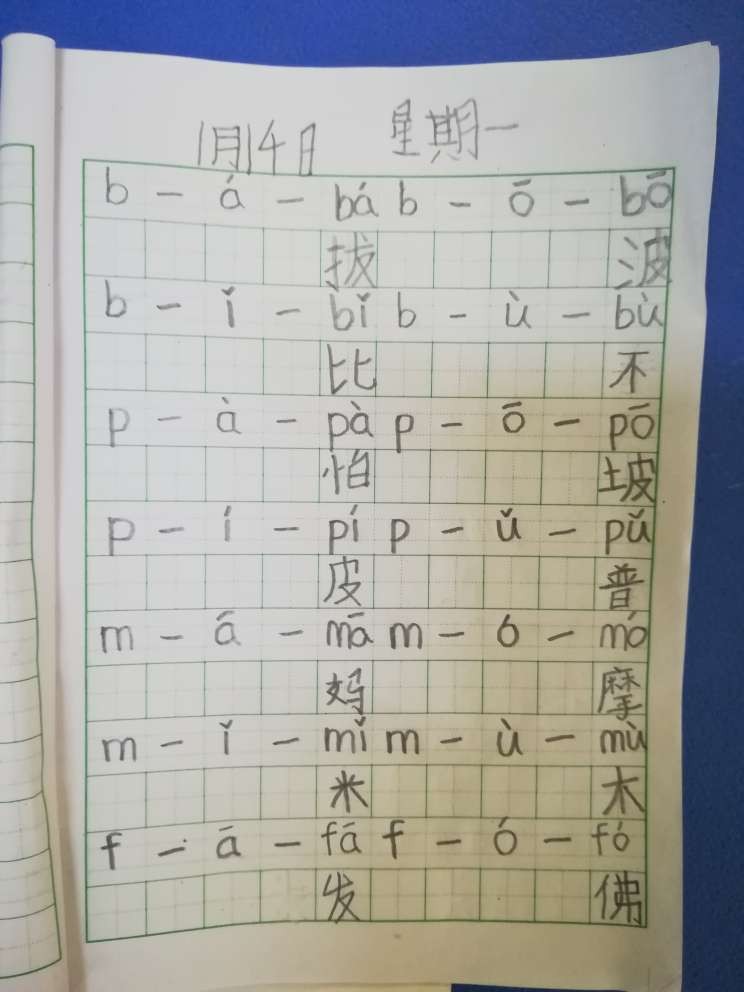 1月14日 星期一
b - á - bá b - ō - bō
拔 波
b - ǐ - bǐ b - ù - bù
比 不
p - à - pà p - ō - pō
怕 坡
p - í - pí p - ǔ - pǔ
皮 普
m - ā - mā m - ó - mó
妈 摩
m - ǐ - mǐ m - ù - mù
米 木
f - ā - fā f - ó - fó
发 佛